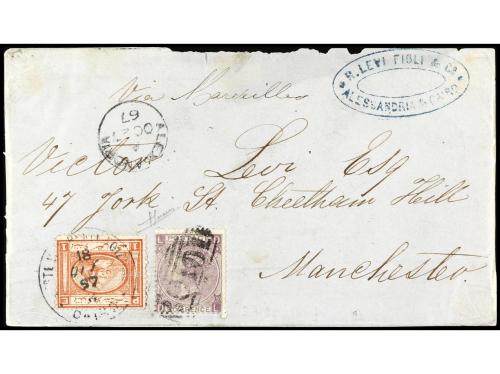 R. LEVI FIGLI & Co.
ALESSANDRIA & CAIRO
Via Marseilles
ALEXANDRIA
A
OC 27
67
Victor Levi Esq
47 York St. Cheetham Hill
Manchester
18
67
CAIRO